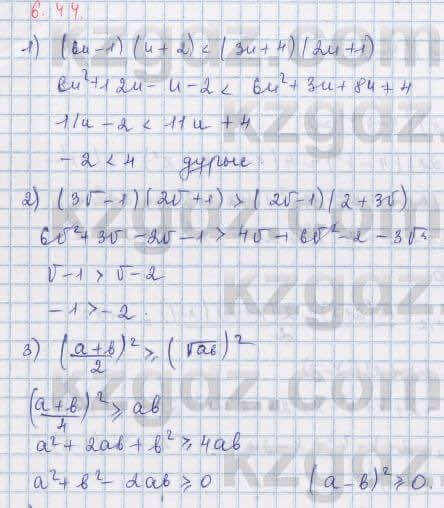 6.44.
1) (6u-1)(u+2)<(3u+4)(2u+1)
6u²+12u-u-2< 6u²+3u+8u+4
11u-2<11u+4
-2<4 дурыс
2) (3v-1)(2v+1)>(2v-1)(2+3v)
6v²+3v-2v-1>4v+6v²-2-3v
v-1>v-2
-1>-2.
3) (a+b/2)²≥(√ab)²
(a+b)²/4≥ab
a²+2ab+b²≥4ab
a²+b²-2ab≥0 (a-b)²≥0.
kzgdz.com